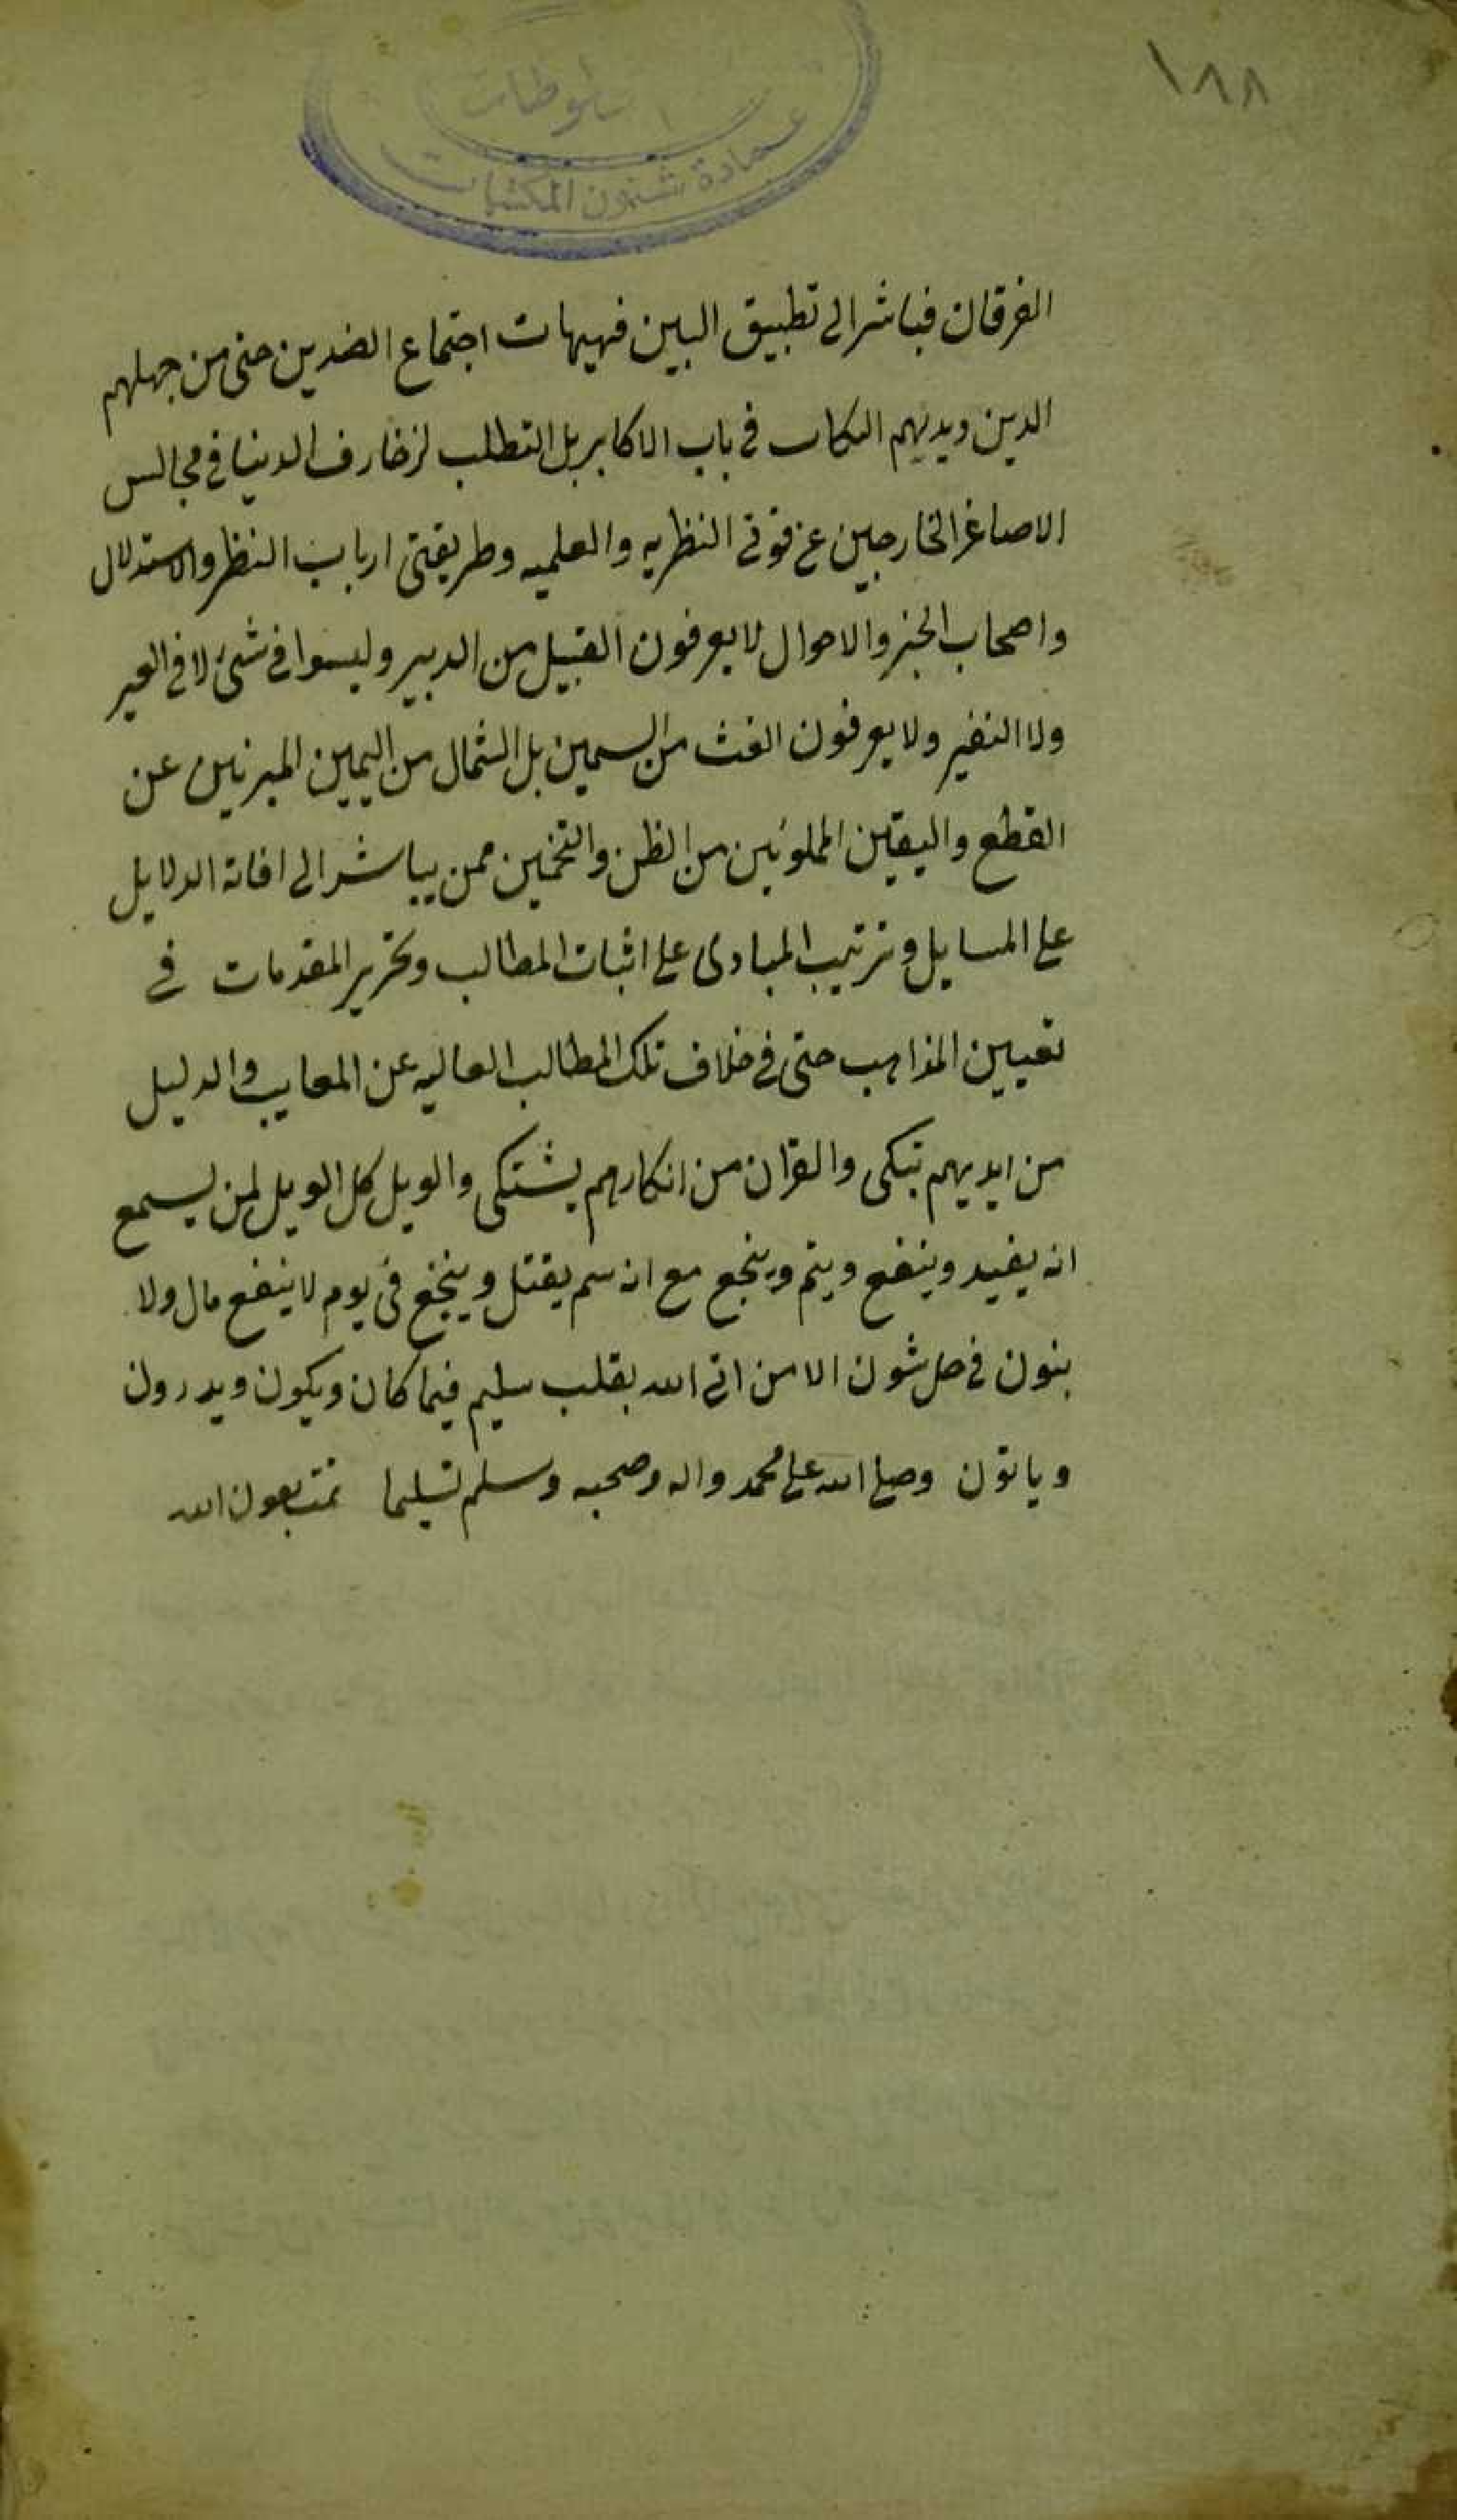 ١٨٨
عمادة شئون المكتبات
الفرقان فباشر الى تطبيق البين فهيهات اجتماع الضدين حتى من جهلهم
الدين ويديهم الكتاب في باب الاكابر بل التطلب لزخارف الدنيا في مجالس
الاصاغر الخارجين عن قوتى النظريه والعلميه وطريقتى ارباب النظر والاستدلال
واصحاب الخبر والاحوال لا يعرفون القبيل من الدبير وليسوا في شئ لا في العير
ولا النفير ولا يعرفون الغث من السمين بل الشمال من اليمين المبرئين عن
القطع واليقين المملوئين من الظن والتخمين ممن يباشر الى اقامة الدلايل
على المسايل وترتيب المبادى على اثبات المطالب وتحرير المقدمات في
تعيين المذاهب حتى في خلاف تلك المطالب العاليه عن المعايب والدليل
من ايديهم تبكى والقران من انكارهم يشتكى والويل كل الويل لمن يسمع
انه يفيد وينفع ويتم وينجع مع انه سم يقتل وينخع في يوم لا ينفع مال ولا
بنون في كل شون الا من اتى الله بقلب سليم فيما كان ويكون ويدرون
وياتون وصلى الله على محمد واله وصحبه وسلم تسليما تمت بعون الله